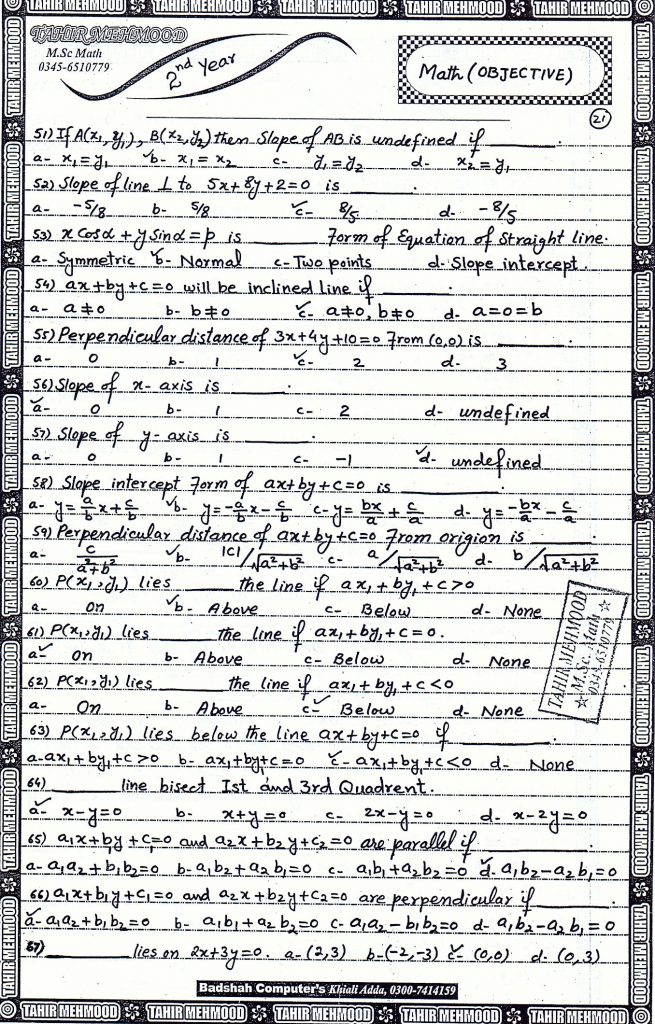 TAHIR MEHMOOD TAHIR MEHMOOD TAHIR MEHMOOD TAHIR MEHMOOD TAHIR MEHMOOD
TAHIR MEHMOOD
M.Sc Math
0345-6510779
2nd Year
Math (OBJECTIVE)
21
51) If A(x₁, y₁), B(x₂, y₂) then Slope of AB is undefined if ______.
a- x₁ = y₁ ✓b- x₁ = x₂ c- y₁ = y₂ d- x₂ = y₁
52) Slope of line ⊥ to 5x+8y+2=0 is ______.
a- -5/8 b- 5/8 ✓c- 8/5 d- -8/5
53) x Cosα + y Sinα = p is ______ Form of Equation of Straight line.
a- Symmetric ✓b- Normal c- Two points d- Slope intercept.
54) ax+by+c=0 will be inclined line if ______.
a- a≠0 b- b≠0 ✓c- a≠0, b≠0 d- a=0=b
55) Perpendicular distance of 3x+4y+10=0 From (0,0) is ______.
a- 0 b- 1 ✓c- 2 d- 3
56) Slope of x-axis is ______.
✓a- 0 b- 1 c- 2 d- undefined
57) Slope of y-axis is ______.
a- 0 b- 1 c- -1 ✓d- undefined
58) Slope intercept Form of ax+by+c=0 is ______.
a- y=a/b x+c/b ✓b- y=-a/b x-c/b c- y=bx/a+c/a d- y=-bx/a-c/a
59) Perpendicular distance of ax+by+c=0 From origion is ______.
a- c/a²+b² ✓b- |c|/√a²+b² c- a/√a²+b² d- b/√a²+b²
60) P(x₁,y₁) lies ______ the line if ax₁+by₁+c>0
a- on ✓b- Above c- Below d- None
61) P(x₁,y₁) lies ______ the line if ax₁+by₁+c=0.
a-✓ On b- Above c- Below d- None
62) P(x₁,y₁) lies ______ the line if ax₁+by₁+c<0
a- On b- Above c-✓ Below d- None
TAHIR MEHMOOD
☆ M.Sc. Math ☆
0345-6510779
63) P(x₁,y₁) lies below the line ax+by+c=0 if ______.
a- ax₁+by₁+c>0 b- ax₁+by₁+c=0 ✓c- ax₁+by₁+c<0 d- None
64) ______ line bisect Ist and 3rd Quadrent.
✓a- x-y=0 b- x+y=0 c- 2x-y=0 d- x-2y=0
65) a₁x+b₁y+c₁=0 and a₂x+b₂y+c₂=0 are parallel if ______.
a- a₁a₂+b₁b₂=0 b- a₁b₂+a₂b₁=0 c- a₁b₁+a₂b₂=0 ✓d- a₁b₂-a₂b₁=0
66) a₁x+b₁y+c₁=0 and a₂x+b₂y+c₂=0 are perpendicular if ______.
✓a- a₁a₂+b₁b₂=0 b- a₁b₁+a₂b₂=0 c- a₁a₂-b₁b₂=0 d- a₁b₂-a₂b₁=0
67) ______ lies on 2x+3y=0. a- (2,3) b- (-2,-3) ✓c- (0,0) d- (0,3)
Badshah Computer's Khiali Adda, 0300-7414159
TAHIR MEHMOOD TAHIR MEHMOOD TAHIR MEHMOOD TAHIR MEHMOOD TAHIR MEHMOOD